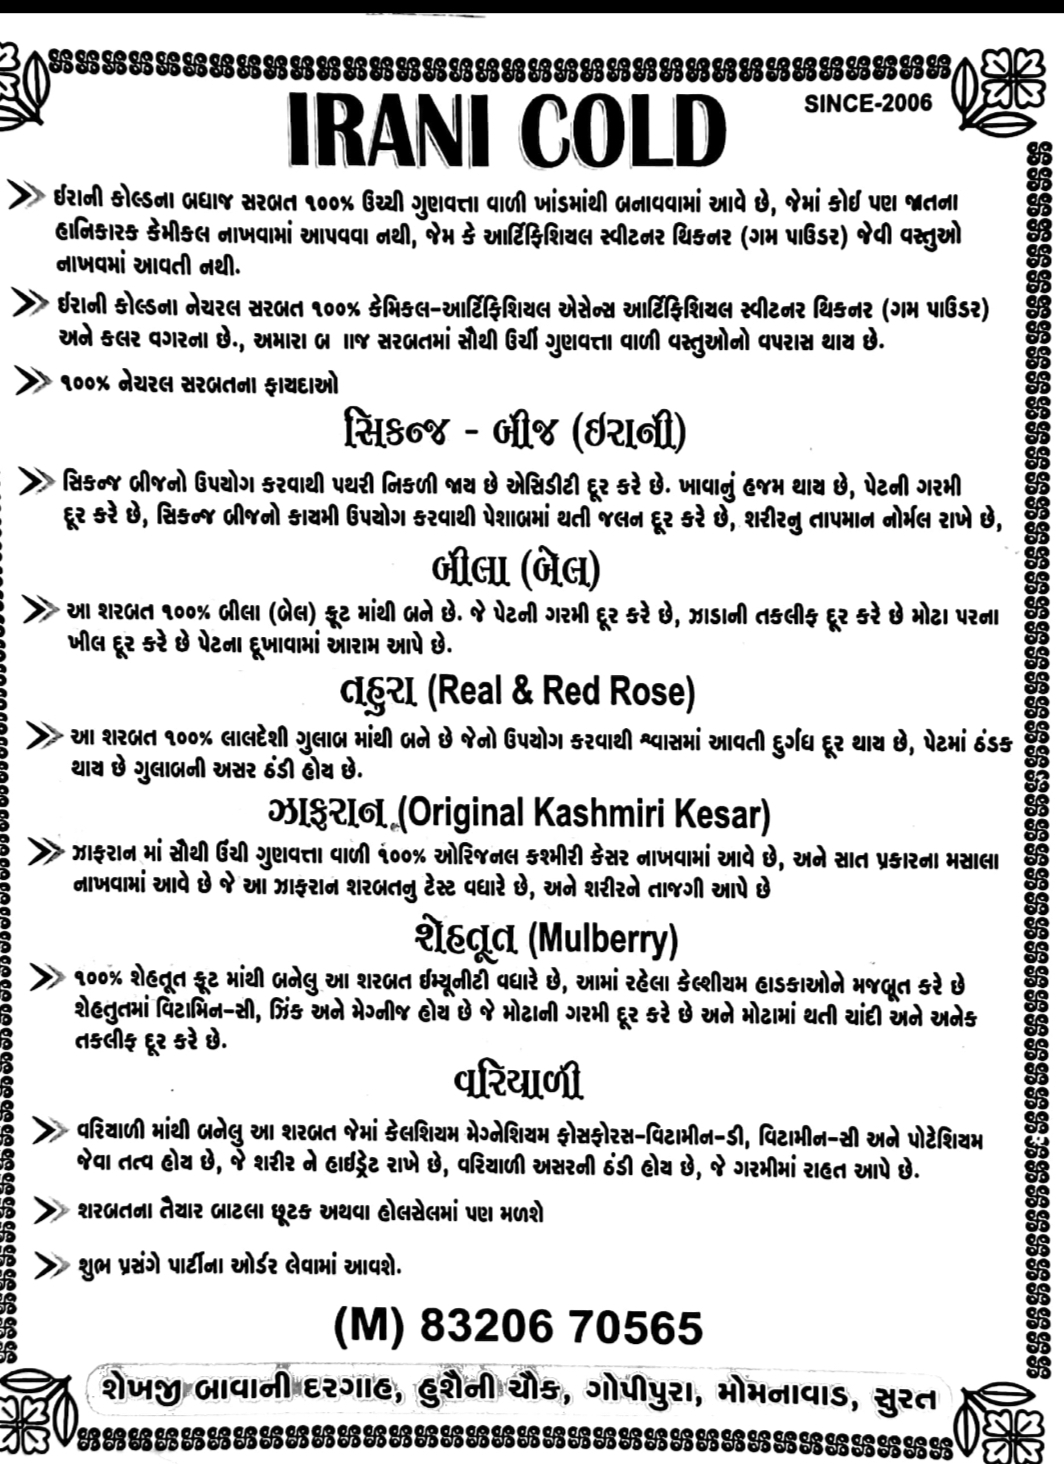 IRANI COLD
SINCE-2006
ઈરાની કોલ્ડના બધાજ સરબત ૧૦૦% ઉચ્ચી ગુણવત્તા વાળી ખાંડમાંથી બનાવવામાં આવે છે, જેમાં કોઈ પણ જાતના
હાનિકારક કેમીકલ નાખવામાં આપવવા નથી, જેમ કે આર્ટિફિશિયલ સ્વીટનર થિકનર (ગમ પાઉડર) જેવી વસ્તુઓ
નાખવમાં આવતી નથી.
ઈરાની કોલ્ડના નેચરલ સરબત ૧૦૦% કેમિકલ-આર્ટિફિશિયલ એસેન્સ આર્ટિફિશિયલ સ્વીટનર થિકનર (ગમ પાઉડર)
અને કલર વગરના છે., અમારા સરબતમાં સૌથી ઉચી ગુણવત્તા વાળી વસ્તુઓનો વપરાસ થાય છે.
૧૦૦% નેચરલ સરબતના ફાયદાઓ
સિકન્જ - બીજ (ઈરાની)
સિકન્જ બીજનો ઉપયોગ કરવાથી પથરી નિકળી જાય છે એસિડીટી દૂર કરે છે. ખાવાનું હજમ થાય છે, પેટની ગરમી
દૂર કરે છે, સિકન્જ બીજનો કાયમી ઉપયોગ કરવાથી પેશાબમાં થતી જલન દૂર કરે છે, શરીરનુ તાપમાન નોર્મલ રાખે છે,
બીલા (બેલ)
આ શરબત ૧૦૦% બીલા (બેલ) ફ્રૂટ માંથી બને છે. જે પેટની ગરમી દૂર કરે છે, ઝાડાની તકલીફ દૂર કરે છે મોટા પરના
ખીલ દૂર કરે છે પેટના દૂખાવામાં આરામ આપે છે.
તહુરા (Real & Red Rose)
આ શરબત ૧૦૦% લાલદેશી ગુલાબ માંથી બને છે જેનો ઉપયોગ કરવાથી શ્વાસમાં આવતી દુર્ગધ દૂર થાય છે, પેટમાં ઠંડક
થાય છે ગુલાબની અસર ઠંડી હોય છે.
ઝાફરાન (Original Kashmiri Kesar)
ઝાફરાન માં સૌથી ઉંચી ગુણવત્તા વાળી ૧૦૦% ઓરિજનલ કશ્મીરી કેસર નાખવામાં આવે છે, અને સાત પ્રકારના મસાલા
નાખવામાં આવે છે જે આ ઝાફરાન શરબતનુ ટેસ્ટ વધારે છે, અને શરીરને તાજગી આપે છે
શેહતૂત (Mulberry)
૧૦૦% શેહતૂત ફ્રૂટ માંથી બનેલુ આ શરબત ઈમ્યૂનીટી વધારે છે, આમાં રહેલા કેલ્શીયમ હાડકાઓને મજબૂત કરે છે
શેહતુતમાં વિટામિન-સી, ઝિંક અને મેગ્નીજ હોય છે જે મોટાની ગરમી દૂર કરે છે અને મોટામાં થતી ચાંદી અને અનેક
તકલીફ દૂર કરે છે.
વરિયાળી
વરિયાળી માંથી બનેલુ આ શરબત જેમાં કેલશિયમ મેગ્નેશિયમ ફોસફોરસ-વિટામીન-ડી, વિટામીન-સી અને પોટેશિયમ
જેવા તત્વ હોય છે, જે શરીર ને હાઈડ્રેટ રાખે છે, વરિયાળી અસરની ઠંડી હોય છે, જે ગરમીમાં રાહત આપે છે.
શરબતના તૈયાર બાટલા છૂટક અથવા હોલસેલમાં પણ મળશે
શુભ પ્રસંગે પાર્ટીના ઓર્ડર લેવામાં આવશે.
(M) 83206 70565
શેખજી બાવાની દરગાહ, હુશૈની ચૌક, ગોપીપુરા, મોમનાવાડ, સુરત